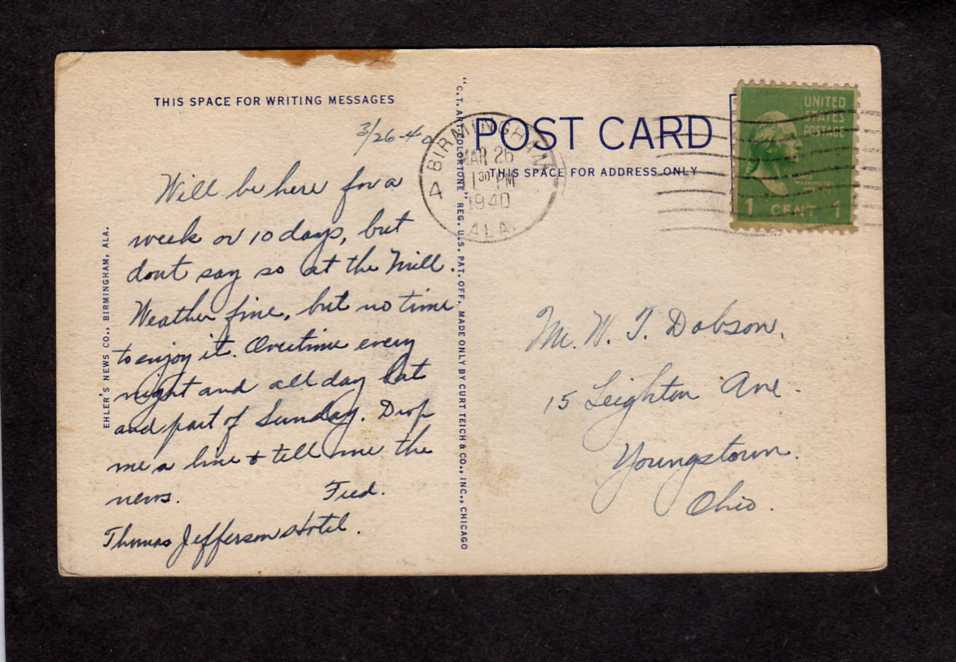 THIS SPACE FOR WRITING MESSAGES
3/26-40
Will be here for a
week or 10 days, but
dont say so at the Mill.
Weather fine, but no time
to enjoy it. Overtime every
night and all day Sat
and part of Sunday. Drop
me a line & tell me the
news. Fred.
Thomas Jefferson Hotel.
EHLER'S NEWS CO., BIRMINGHAM, ALA.
"C.T. ART-COLORTONE" REG. U.S. PAT. OFF. MADE ONLY BY CURT TEICH & CO., INC., CHICAGO
POST CARD
THIS SPACE FOR ADDRESS ONLY
BIRMINGHAM
MAR 26
30 PM
1940
ALA.
4
UNITED
STATES
POSTAGE
1 CENT 1
Mr. W. T. Dobson,
15 Leighton Ave.
Youngstown.
Ohio.